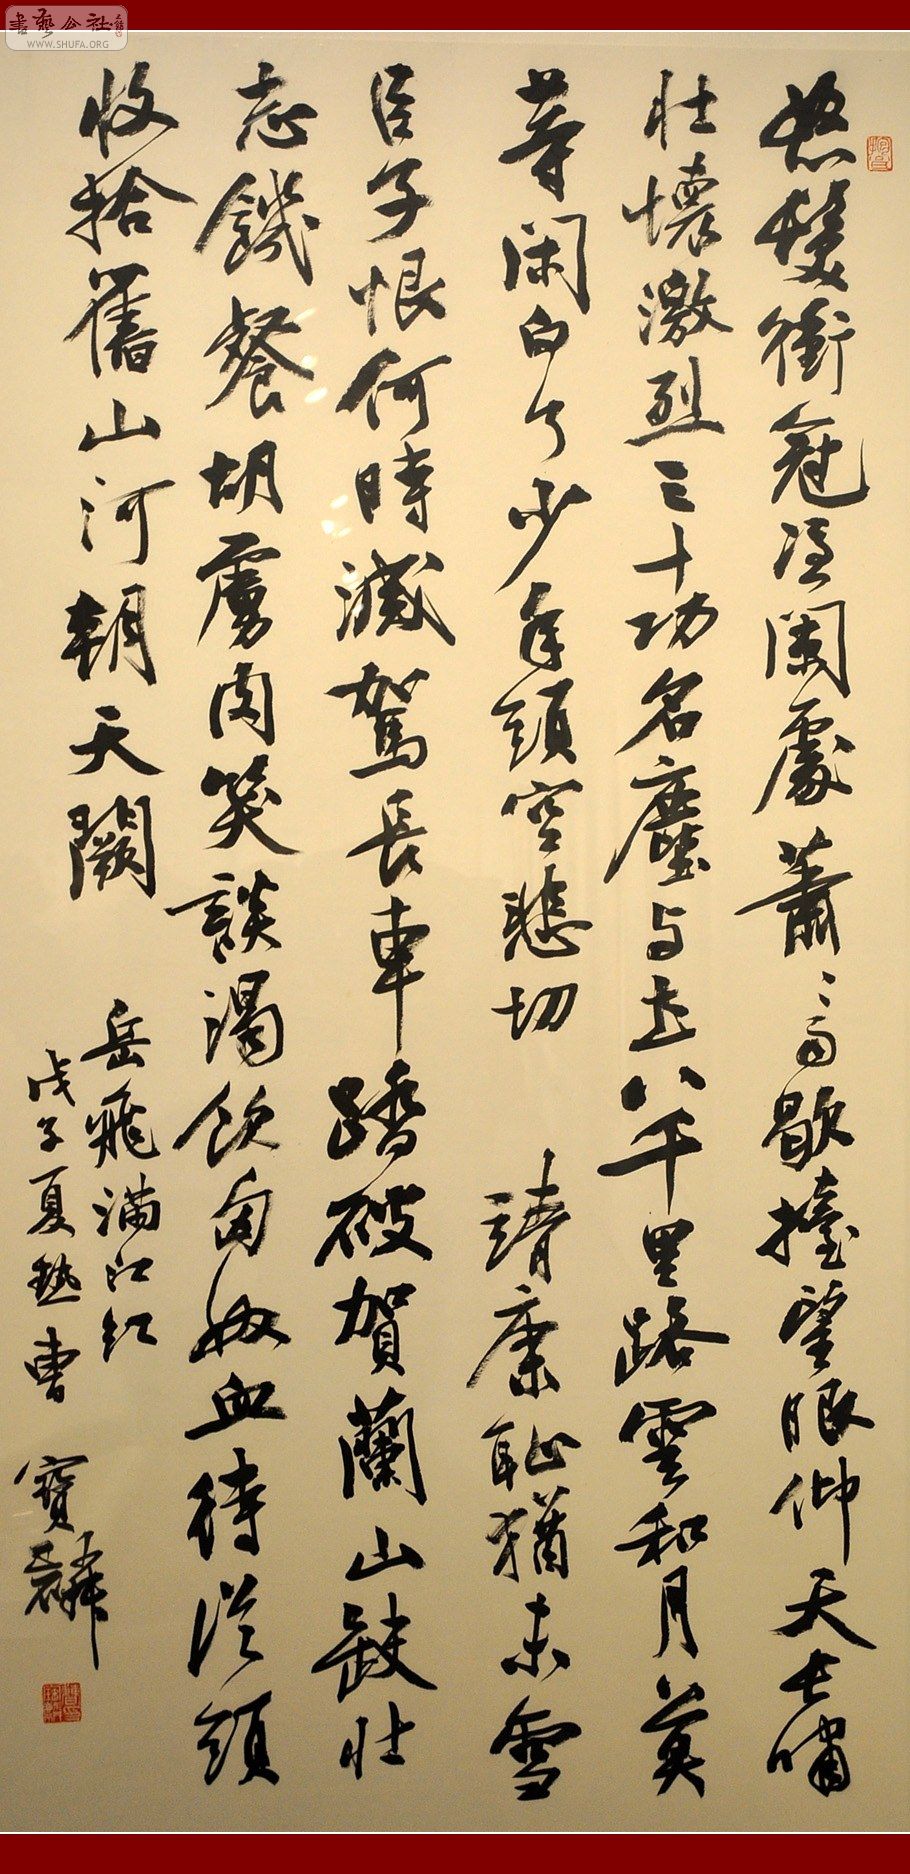 書藝公社
WWW.SHUFA.ORG
怒髮衝冠凭闌處蕭〻雨歇擡望眼仰天长嘯
壯懷激烈三十功名塵与土八千里路雲和月莫
等闲白了少年頭空悲切 靖康恥猶未雪
臣子恨何時滅駕長車踏破賀蘭山缺壯
志饑餐胡虜肉笑談渴飲匈奴血待從頭
收拾舊山河朝天闕
岳飛滿江红
戊子夏熱曹寶麟